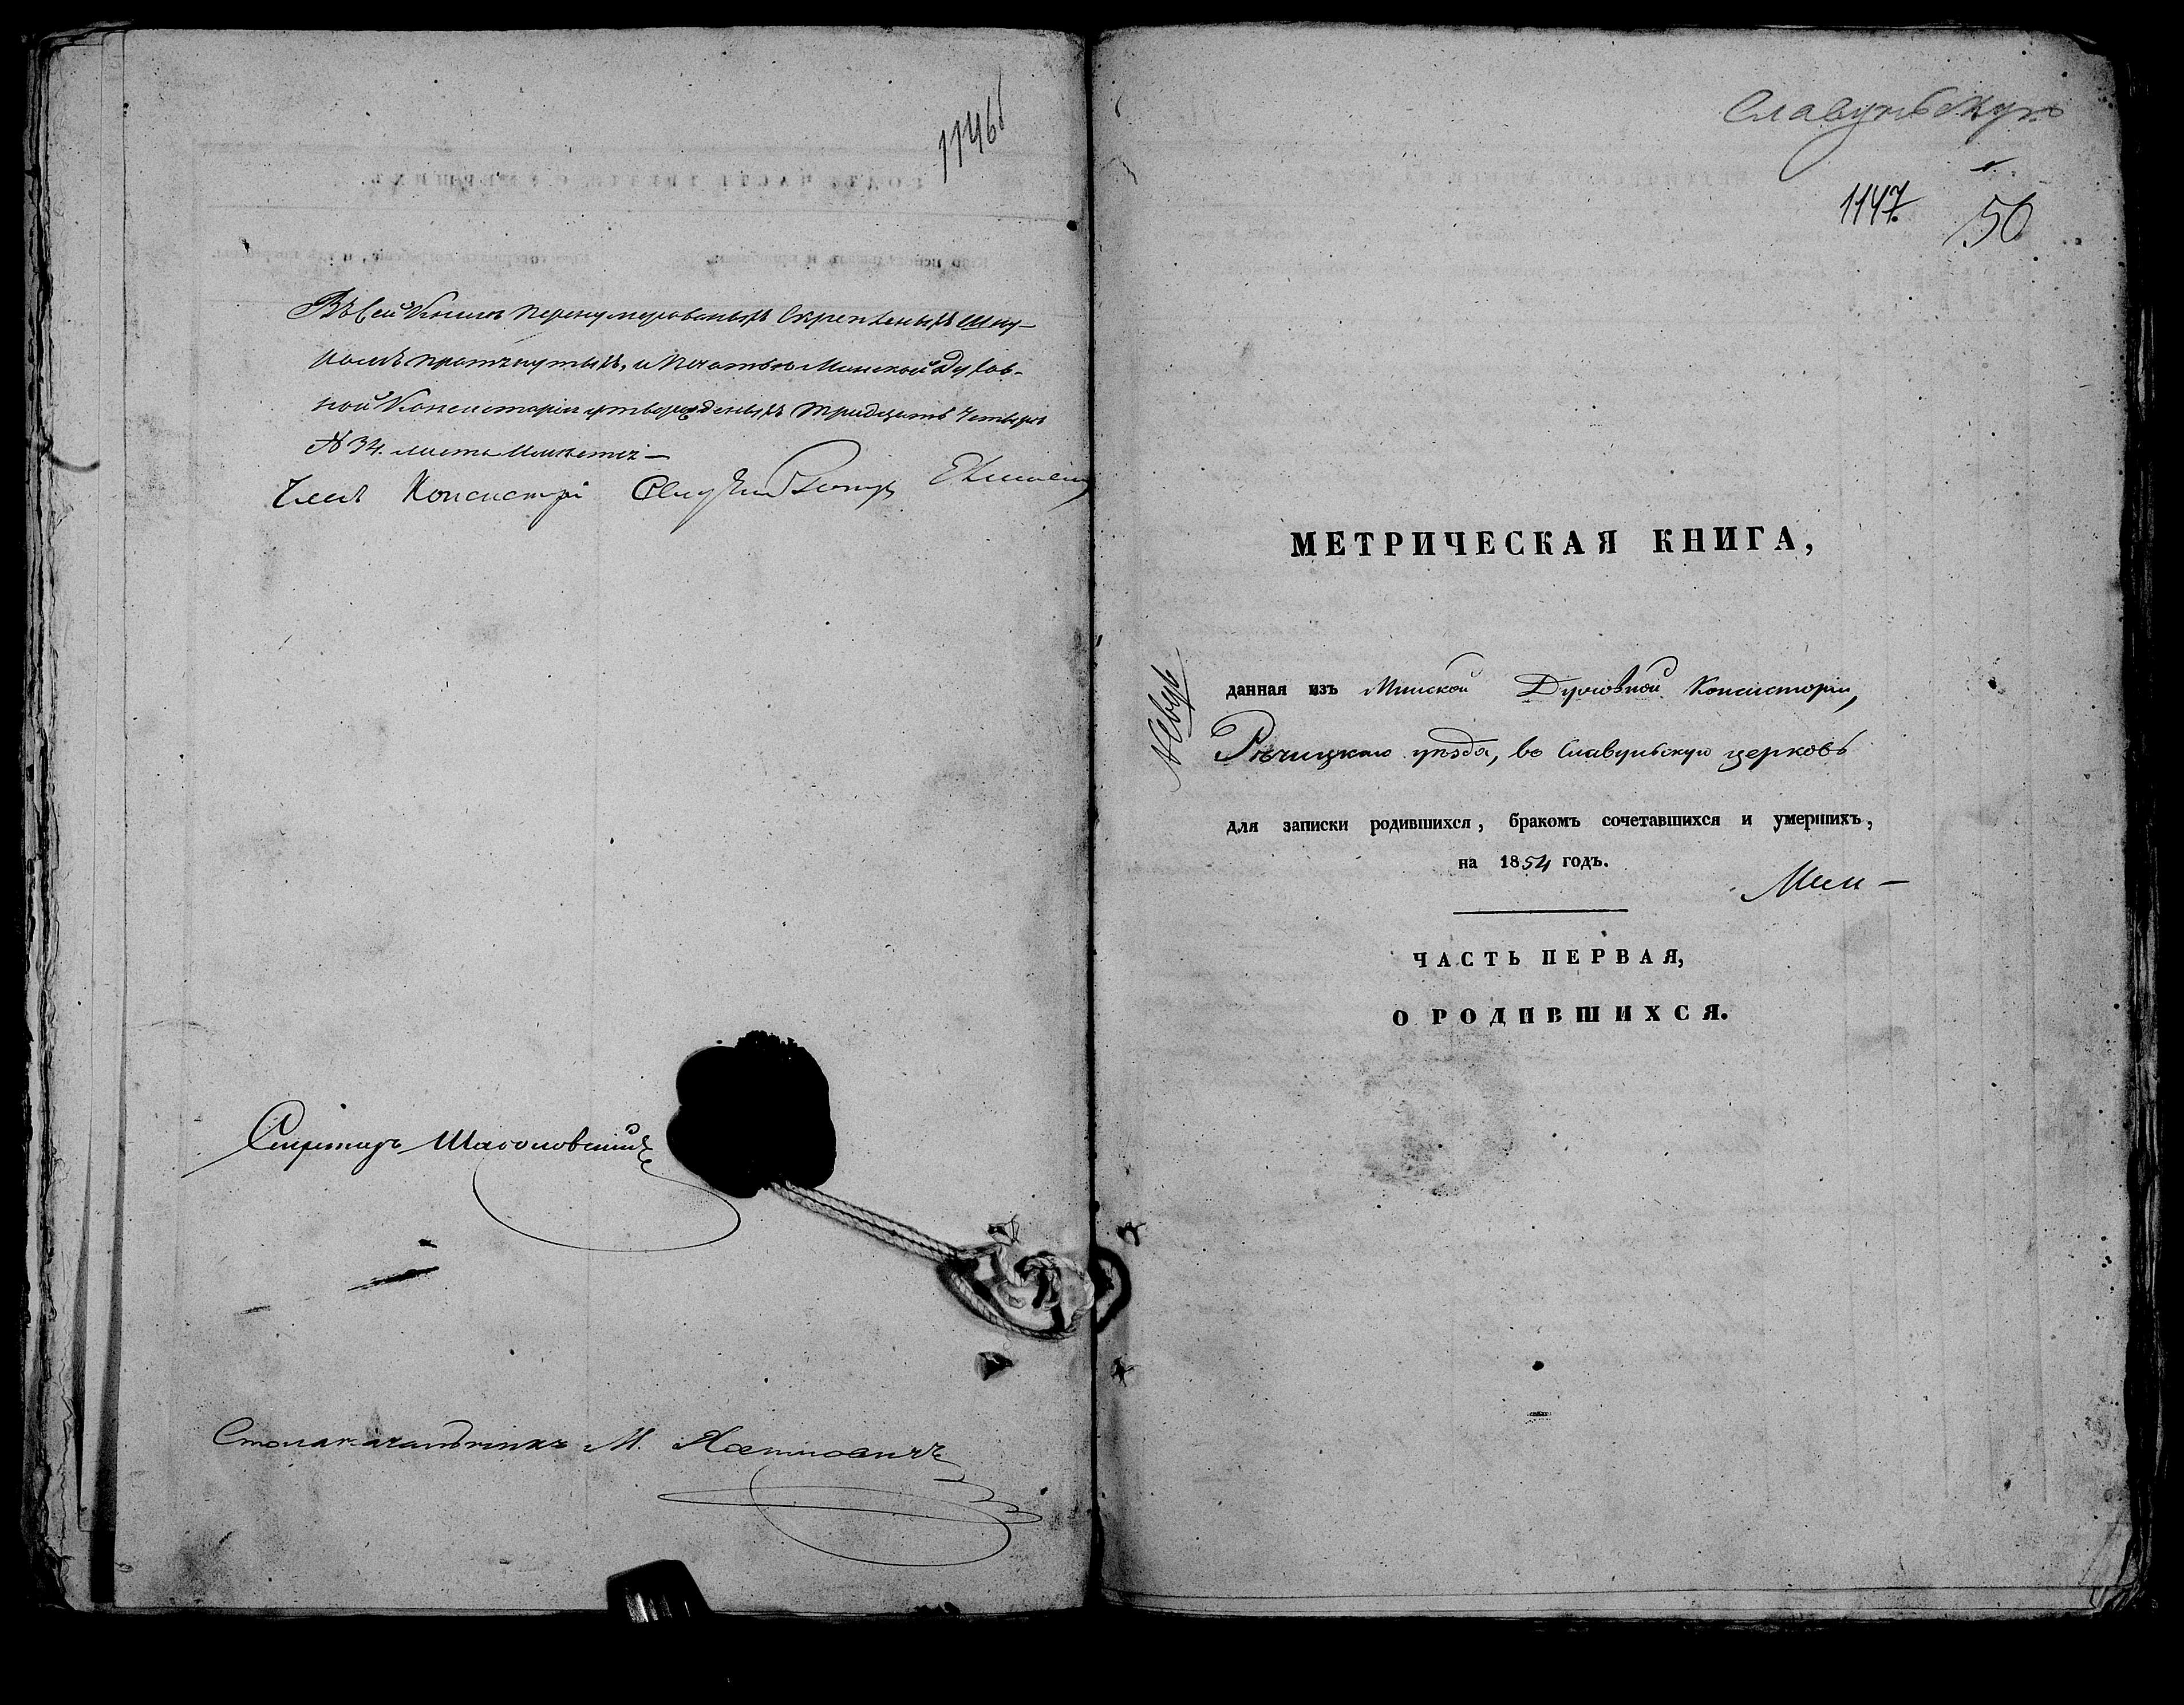 1146
Въ сей Книгѣ перенумерованыхъ скрепленыхъ Шну-
ромъ протянутыхъ, и Печатью Минской Духов-
ной Консисторіи утвержденыхъ тридцать четыре
№ 34. листа Имѣется —
Членъ Консисторі
Секретарь
Столоначальникъ М.
Славульскую
1147.
50
МЕТРИЧЕСКАЯ КНИГА,
данная изъ Минской Духовной Консисторіи,
Рѣчицкаго уѣзда, въ Славульскую церковь
для записки родившихся, бракомъ сочетавшихся и умершихъ,
на 1854 годъ.
ЧАСТЬ ПЕРВАЯ,
О РОДИВШИХСЯ.